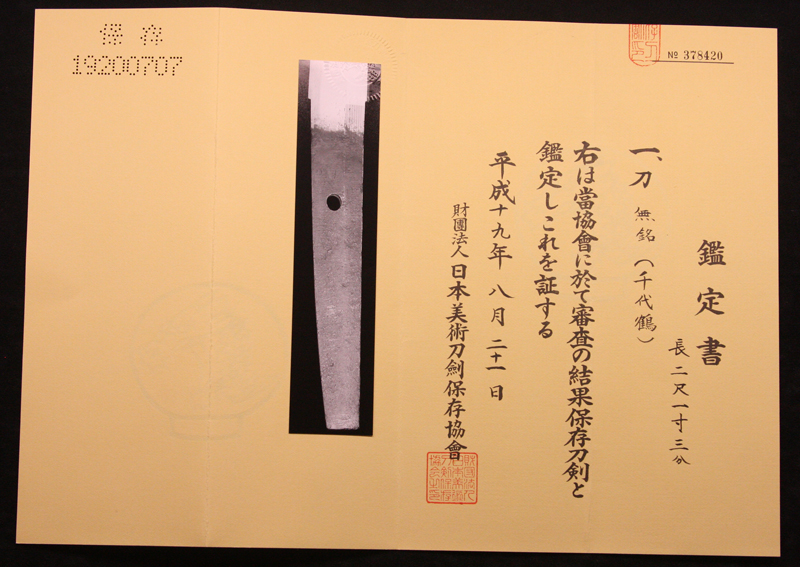 保存
19200707
№ 378420
鑑定書
長二尺一寸三分
一、刀 無銘(千代鶴)
右は當協會に於て審査の結果保存刀剣と
鑑定しこれを証する
平成十九年 八月 二十一日
財團法人 日本美術刀劍保存協會